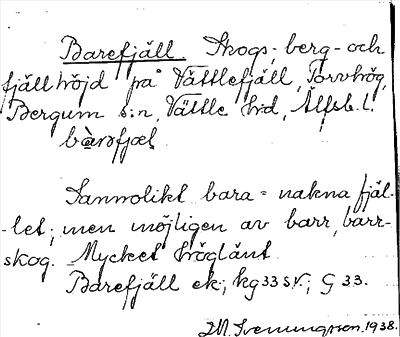 Barefjäll. Skogs-, berg- och
fjällhöjd på Vättlefjäll, Torvhög,
Bergum s:n, Vättle hd, Älfsb. l.
bàrəfjæl
Sannolikt bara = nakna fjäl-
-let; men möjligen av barr, barr-
skog. Mycket höglänt.
Barefjäll ek; kg 33 SV.; G 33.
M. Svenungsson. 1938.